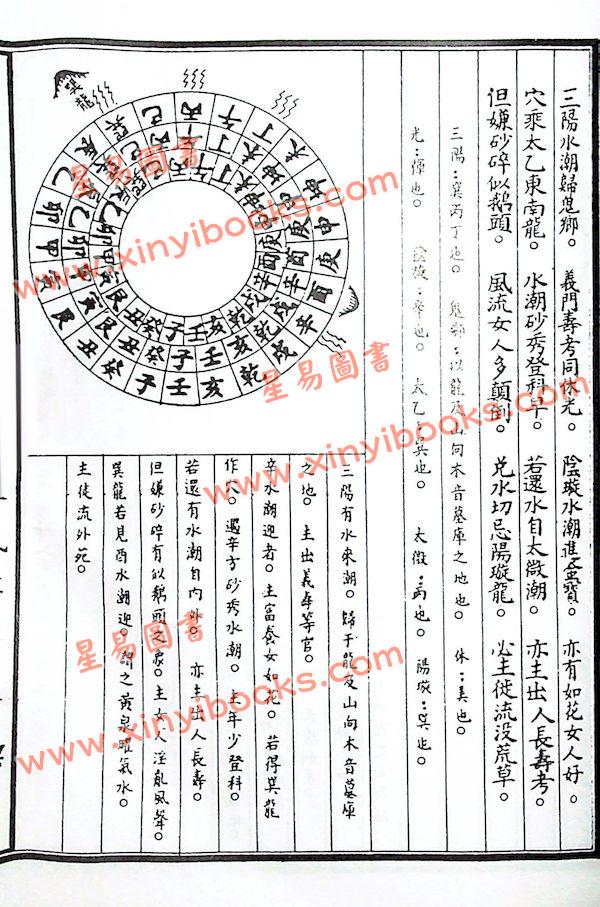 三陽水潮歸鬼鄉。 義門壽考同休光。 陰璇水潮進蚕寶。 亦有如花女人好。
穴乘太乙東南龍。 水潮砂秀登科早。 若還水自太微潮。 亦主出人長壽考。
但嫌砂碎似鵝頭。 風流女人多顛倒。 兌水切忌陽璇龍。 必主徒流没荒草。
三陽：巽丙丁也。 鬼鄉：以龍及山向木音墓庫之地也。 休：美也。
光：偉也。 陰璇：辛也。 太乙：巽也。 太微：丙也。 陽璇：巽也。
巽龍
巽巳丙午丁未坤申庚酉辛戌乾亥壬子癸丑艮寅甲卯乙辰
三陽有水來潮。歸于龍及山向木音墓庫
之地。主出義每等官。
辛水潮迎者。主富養女如花。若得巽龍
作穴。遇辛方砂秀水潮。主年少登科。
若還有水潮自內外。亦主出人長壽。
但嫌砂碎有似鵝頭之象。主女人淫亂風聲。
巽龍若見酉水潮迎。謂之黃泉曜氣水。
主徒流外死。
星易圖書
www.xinyibooks.com
星易圖書
www.xinyibooks.com
星易圖書
www.xinyibooks.com